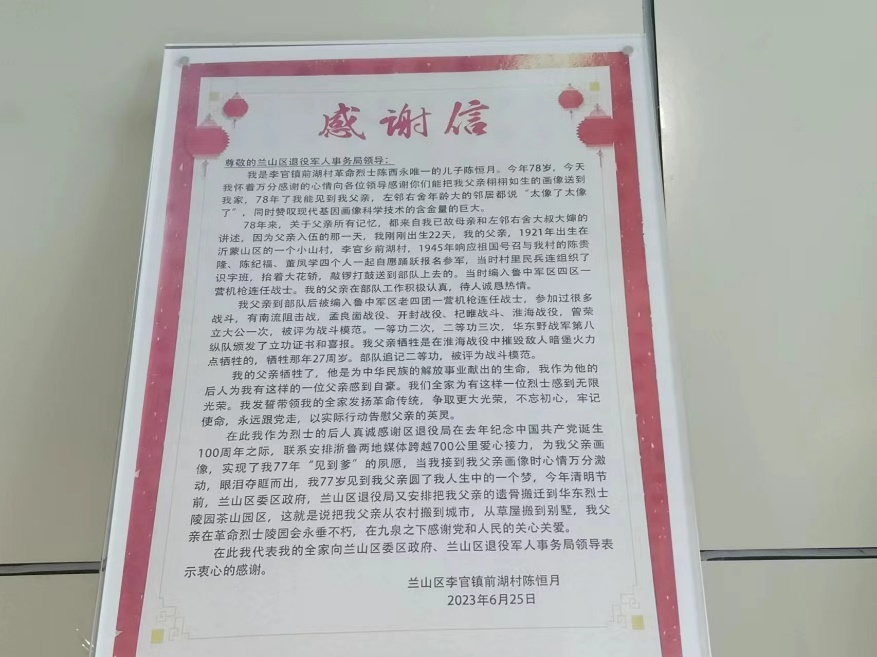 感谢信
尊敬的兰山区退役军人事务局领导：
我是李官镇前湖村革命烈士陈西永唯一的儿子陈恒月。今年78岁，今天
我怀着万分感谢的心情向各位领导感谢你们能把我父亲栩栩如生的画像送到
我家，78年了我能见到我父亲，左邻右舍年龄大的邻居都说“太像了太像
了”，同时赞叹现代基因画像科学技术的含金量的巨大。
78年来，关于父亲所有记忆，都来自我已故母亲和左邻右舍大叔大婶的
讲述，因为父亲入伍的那一天，我刚刚出生22天，我的父亲，1921年出生在
沂蒙山区的一个小山村，李官乡前湖村，1945年响应祖国号召与我村的陈贵
隆、陈纪福、董凤学四个人一起自愿踊跃报名参军，当时村里民兵连组织了
识字班，抬着大花轿，敲锣打鼓送到部队上去的。当时编入鲁中军区四区一
营机枪连任战士。我的父亲在部队工作积极认真，待人诚恳热情。
我父亲到部队后被编入鲁中军区老四团一营机枪连任战士，参加过很多
战斗，有南流阻击战，孟良崮战役、开封战役、杞睢战斗、淮海战役，曾荣
立大公一次，被评为战斗模范。一等功二次，二等功三次，华东野战军第八
纵队颁发了立功证书和喜报。我父亲牺牲是在淮海战役中摧毁敌人暗堡火力
点牺牲的，牺牲那年27周岁。部队追记二等功，被评为战斗模范。
我的父亲牺牲了，他是为中华民族的解放事业献出的生命，我作为他的
后人为我有这样的一位父亲感到自豪。我们全家为有这样一位烈士感到无限
光荣。我发誓带领我的全家发扬革命传统，争取更大光荣，不忘初心，牢记
使命，永远跟党走，以实际行动告慰父亲的英灵。
在此我作为烈士的后人真诚感谢区退役局在去年纪念中国共产党诞生
100周年之际，联系安排浙鲁两地媒体跨越700公里爱心接力，为我父亲画
像，实现了我77年“见到爹”的夙愿，当我接到我父亲画像时心情万分激
动，眼泪夺眶而出，我77岁见到我父亲圆了我人生中的一个梦，今年清明节
前，兰山区委区政府，兰山区退役局又安排把我父亲的遗骨搬迁到华东烈士
陵园茶山园区，这就是说把我父亲从农村搬到城市，从草屋搬到别墅，我父
亲在革命烈士陵园会永垂不朽，在九泉之下感谢党和人民的关心关爱。
在此我代表我的全家向兰山区委区政府、兰山区退役军人事务局领导表
示衷心的感谢。
兰山区李官镇前湖村陈恒月
2023年6月25日